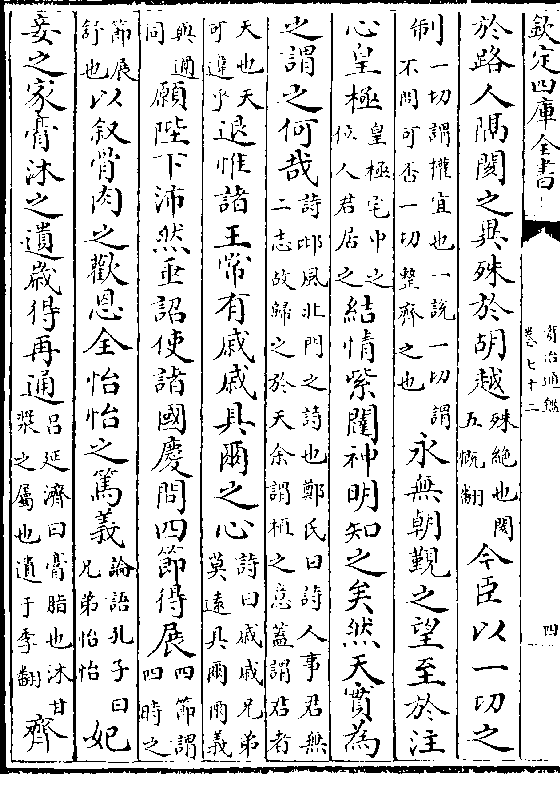 欽定四庫全書
資治通鑑
卷七十二
四
於路人隔閡之異殊於胡越殊絶也閡五慨翻今臣以一切之
制一切謂權宜也一説一切謂不問可否一切整齊之也永無朝覲之望至於注
心皇極皇極宅中之位人君居之結情紫闥神明知之矣然天實為
之謂之何哉詩邶風北門之詩也鄭氏曰詩人事君無二志故歸之於天余謂植之意蓋謂君者
天也天可違乎退惟諸王常有戚戚具爾之心詩曰戚戚兄弟莫遠具爾爾義
與邇同願陛下沛然垂詔使諸國慶問四節得展四節謂四時之
節展舒也以叙骨肉之歡恩全怡怡之篤義論語孔子曰兄弟怡怡妃
妾之家膏沐之遺歲得再通吕延濟曰膏脂也沐甘漿之屬也遺于季翻齊